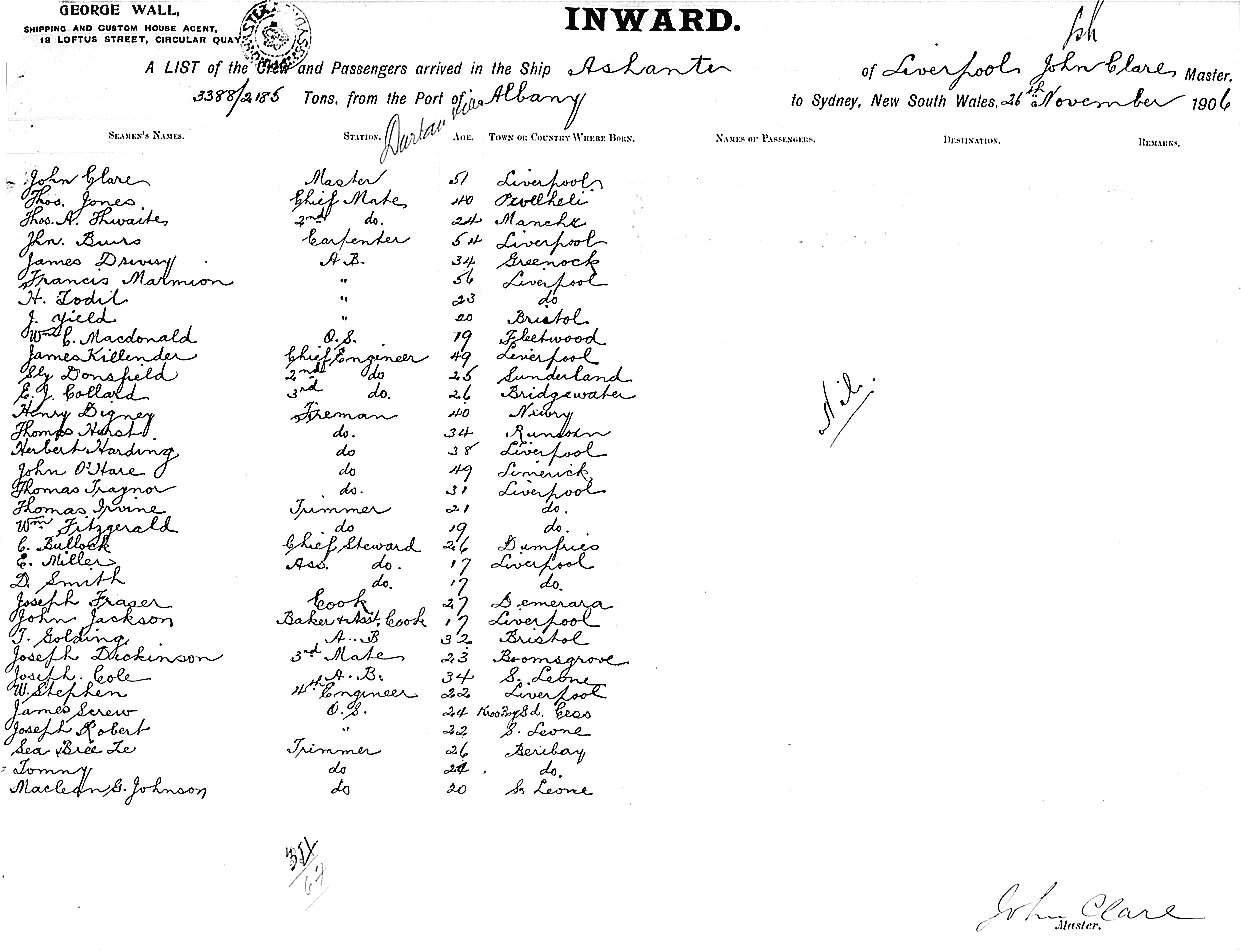 GEORGE WALL,
SHIPPING AND CUSTOM HOUSE AGENT,
18 LOFTUS STREET, CIRCULAR QUAY
INWARD.
A LIST of the Crew and Passengers arrived in the Ship Ashanti of Liverpool, John Clare, Master,
3388/2185 Tons, from the Port of Durban via Albany to Sydney, New South Wales, 26th November 1906
SEAMEN'S NAMES. STATION. AGE. TOWN OR COUNTRY WHERE BORN. NAMES OF PASSENGERS. DESTINATION. REMARKS.
John Clare Master 51 Liverpool
Thos. Jones Chief Mate 40 Pwllheli
Thos. A. Thwaites 2nd do. 24 Manchr
Jhn. Carpenter 54 Liverpool
James A.B. 34 Greenock
Francis Marmion " 56 Liverpool
H. Todil " 23 do
J. Yield " 20 Bristol
Wm C. Macdonald O.S. 19 Fleetwood
James Killender Chief Engineer 49 Liverpool
Donsfield 2nd do 25 Sunderland
E. J. Collard 3rd do. 26 Bridgewater
Henry Digney Fireman 40 Newry
Thomas Hurst do. 34 Runcorn
Herbert Harding do 38 Liverpool
John O'Hare do 49 Limerick
Thomas Traynor do. 31 Liverpool
Thomas Irvine Trimmer 21 do.
Wm Fitzgerald do 19 do.
C. Bullock Chief Steward 26 Dumfries
E. Miller Ass. do. 17 Liverpool
D. Smith do. 17 do.
Joseph Fraser Cook 27 Demerara
John Jackson Baker & Asst. Cook 17 Liverpool
T. Golding A.B 32 Bristol
Joseph Dickinson 3rd Mate 23 Bromsgrove
Joseph. Cole A.B. 34 S. Leone
W. Stephen 4th Engineer 22 Liverpool
James Screw O.S. 24 Cess
Joseph Robert " 22 S. Leone
Sea Bree Ze Trimmer 26 Beribay
Tommy do do.
Maclean G. Johnson do 20 S. Leone
Nil.
John Clare
Master.